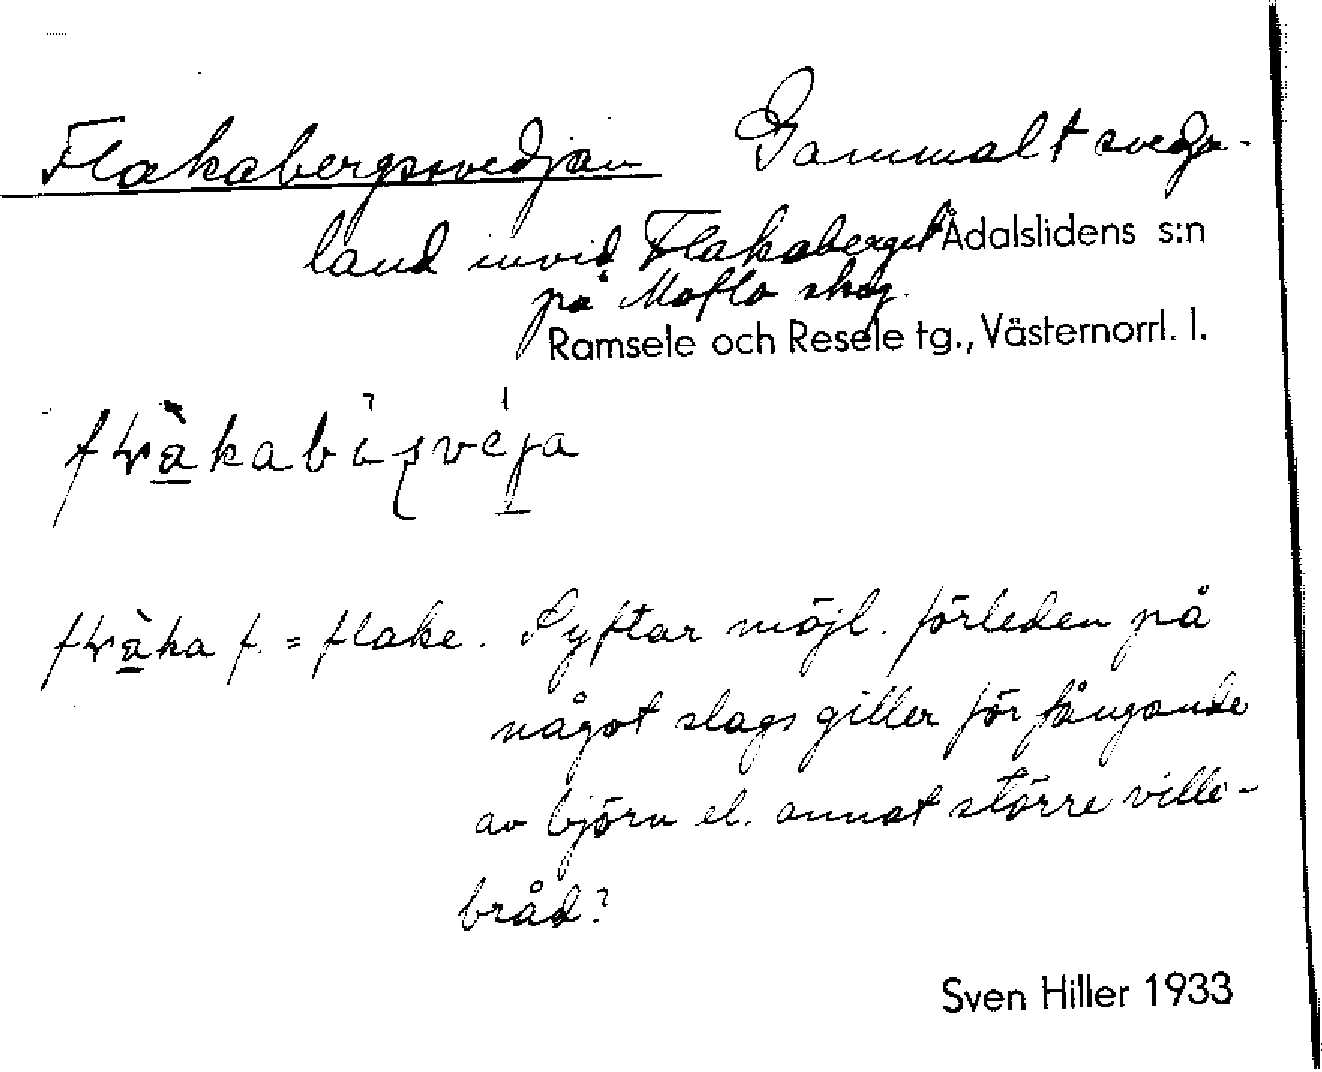 Flakabergssvedjan Gammalt svedje-
land invid Flakaberget Ådalslidens s:n
på Moflo skog.
Ramsele och Resele tg., Västernorrl. l.
f. = flake. Syftar möjl. förleden på
något slags giller för fångande
av björn el. annat större ville-
bråd?
Sven Hiller 1933